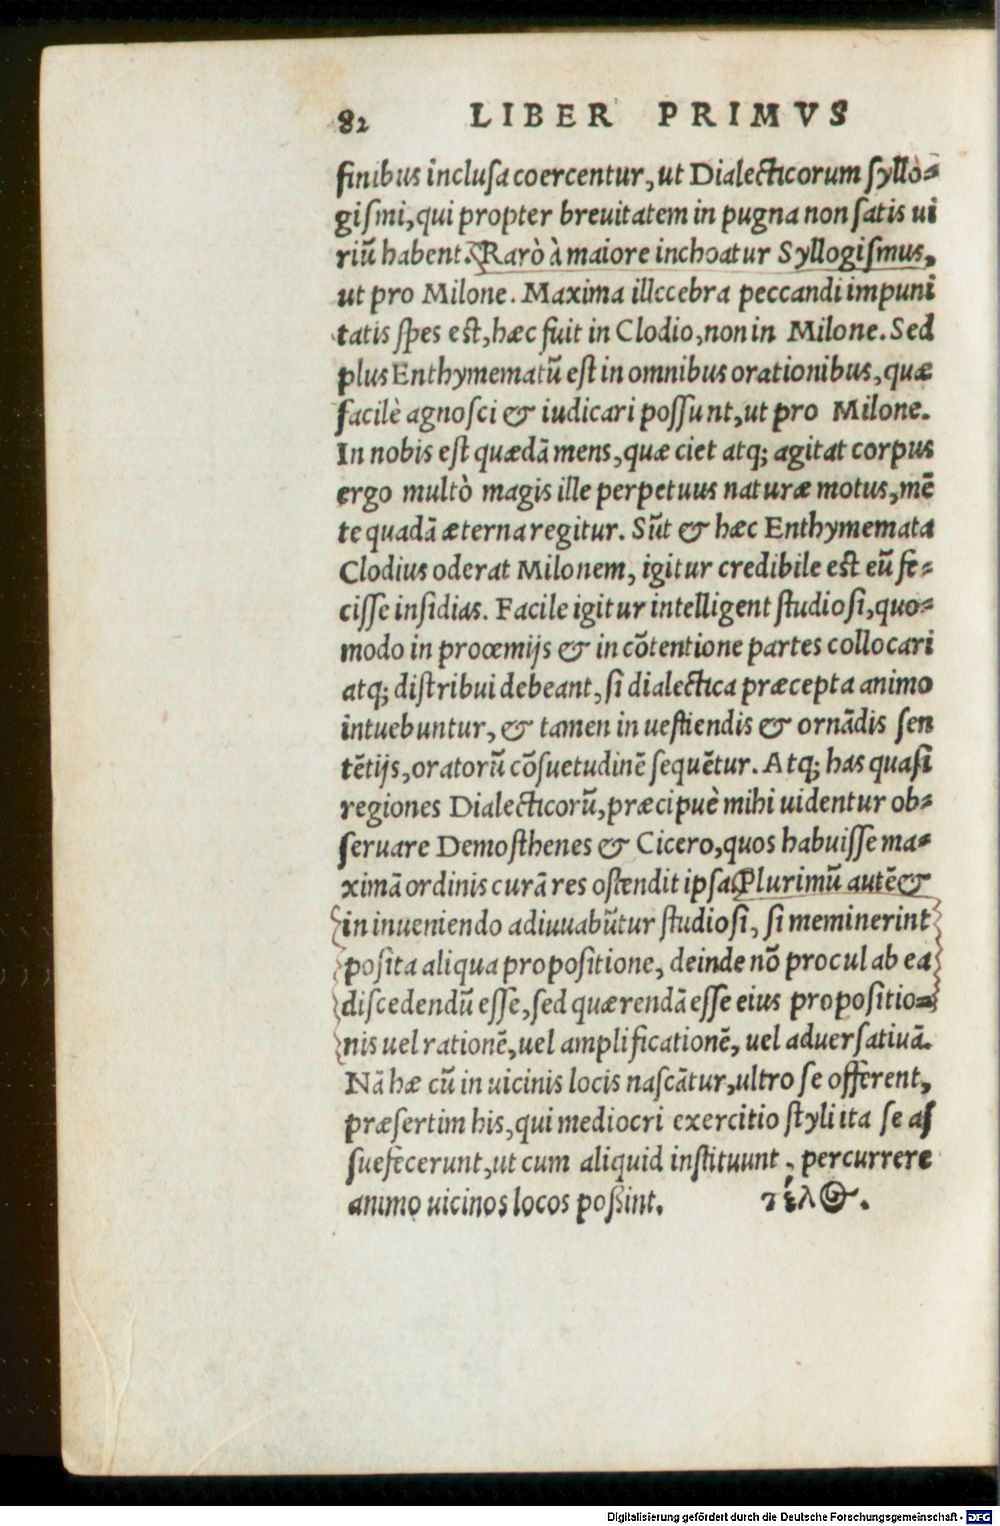 82 LIBER PRIMVS
finibus inclusa coercentur, ut Dialecticorum syllo-
gismi, qui propter breuitatem in pugna non satis ui
riū habent. Rarò à maiore inchoatur Syllogismus,
ut pro Milone. Maxima illecebra peccandi impuni
tatis spes est, hæc fuit in Clodio, non in Milone. Sed
plus Enthymematū est in omnibus orationibus, quæ
facilè agnosci & iudicari possunt, ut pro Milone.
In nobis est quædā mens, quæ ciet atq; agitat corpus
ergo multò magis ille perpetuus naturæ motus, mē
te quadā æterna regitur. Sūt & hæc Enthymemata
Clodius oderat Milonem, igitur credibile est eū fe-
cisse insidias. Facile igitur intelligent studiosi, quo-
modo in proœmijs & in cōtentione partes collocari
atq; distribui debeant, si dialectica præcepta animo
intuebuntur, & tamen in uestiendis & ornādis sen
tētijs, oratorū cōsuetudinē sequētur. Atq; has quasi
regiones Dialecticorū, præcipuè mihi uidentur ob-
seruare Demosthenes & Cicero, quos habuisse ma-
ximā ordinis curā res ostendit ipsa. Plurimū autē &
in inueniendo adiuuabūtur studiosi, si meminerint
posita aliqua propositione, deinde nō procul ab ea
discedendū esse, sed quærendā esse eius propositio-
nis uel rationē, uel amplificationē, uel aduersatiuā.
Nā hæ cū in uicinis locis nascātur, ultro se offerent,
præsertim his, qui mediocri exercitio styli ita se as
suefecerunt, ut cum aliquid instituunt, percurrere
animo uicinos locos poßint. τέλος.
Digitalisierung gefördert durch die Deutsche Forschungsgemeinschaft - DFG